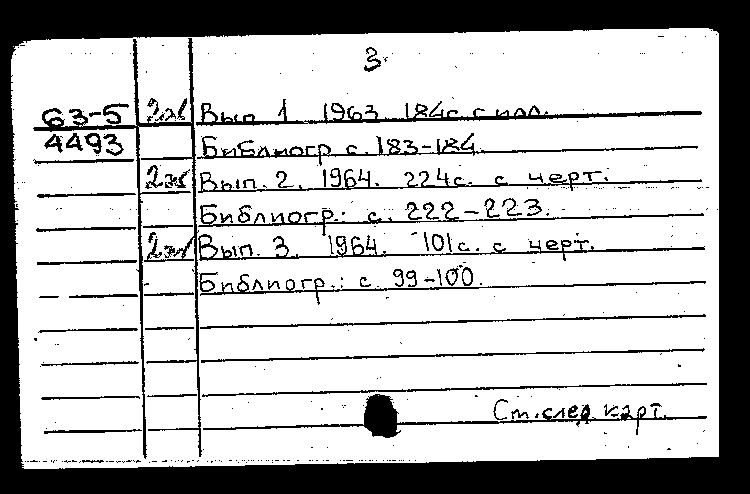 3.
63-5 2эк Вып 1 1963 184с с илл.
4493 Библиогр с. 183-184.
2эк Вып. 2. 1964. 224с. с черт.
Библиогр.: с. 222-223.
2эк Вып. 3. 1964. 101с. с черт.
Библиогр.: с. 99-100.
Ст. след карт.